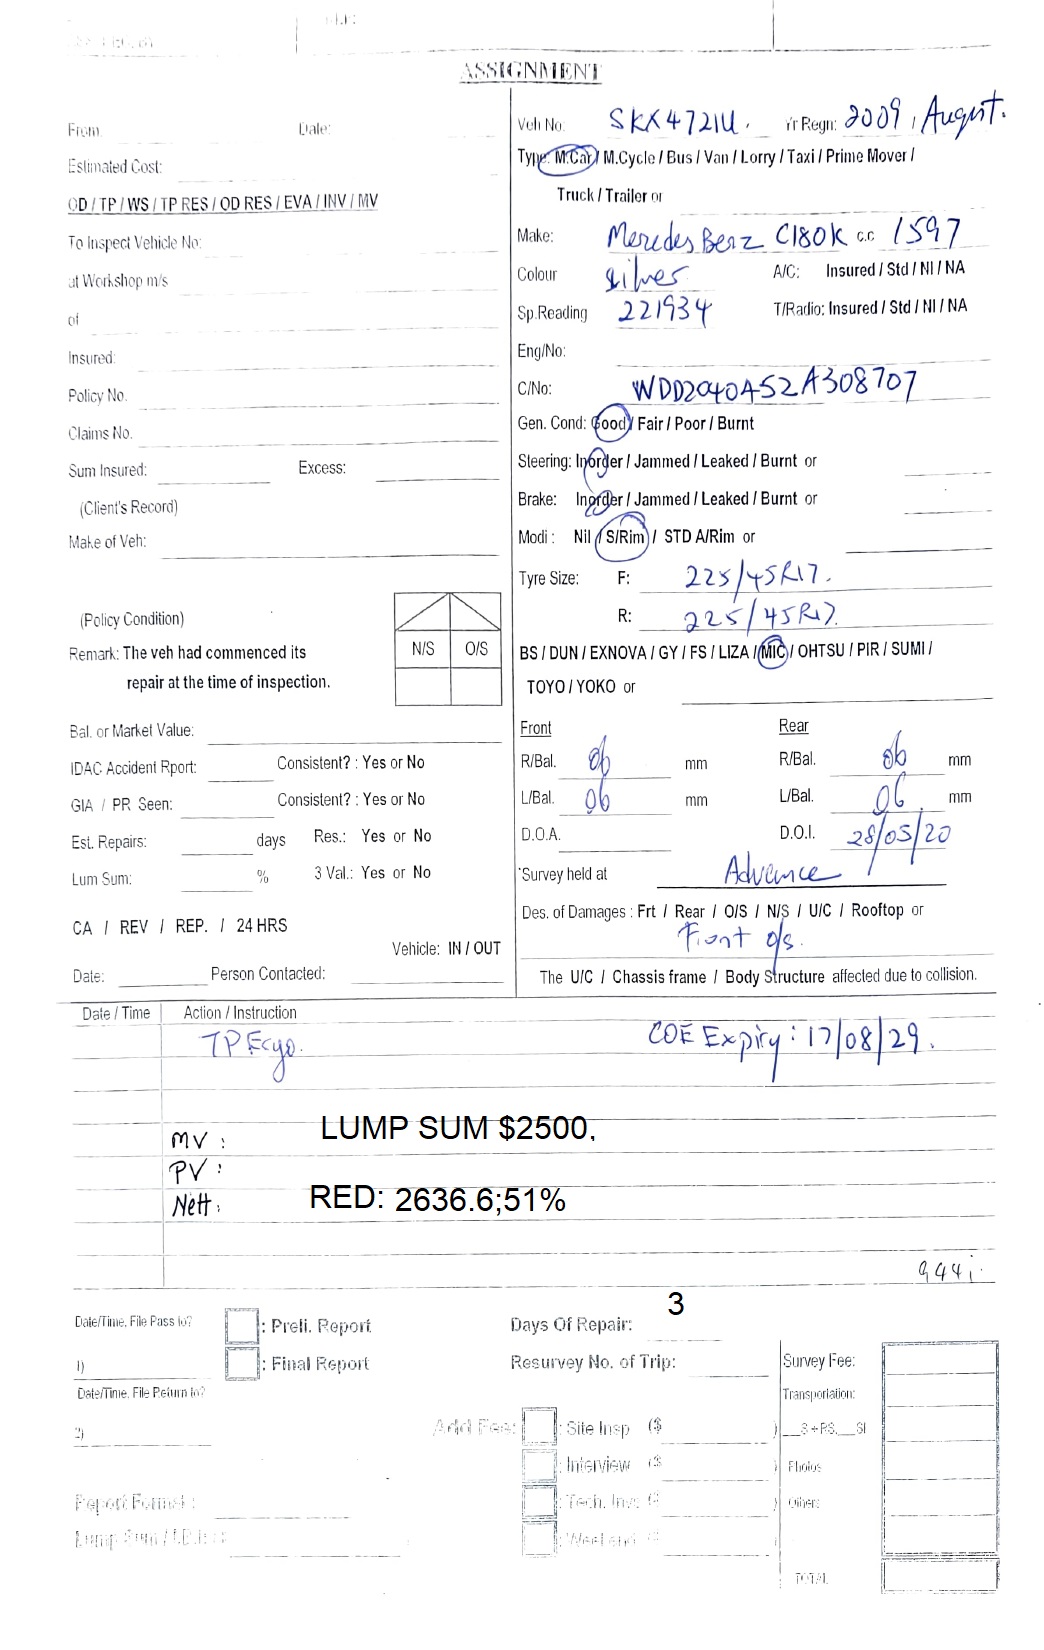 ASSIGNMENT
From: Date:
Estimated Cost:
OD / TP / WS / TP RES / OD RES / EVA / INV / MV
To Inspect Vehicle No:
at Workshop m/s
of
Insured:
Policy No.
Claims No.
Sum Insured: Excess:
(Client's Record)
Make of Veh:
(Policy Condition)
Remark: The veh had commenced its
repair at the time of inspection.
N/S O/S
Bal. or Market Value:
IDAC Accident Rport: Consistent? : Yes or No
GIA / PR Seen: Consistent? : Yes or No
Est. Repairs: days Res.: Yes or No
Lum Sum: % 3 Val.: Yes or No
CA / REV / REP. / 24 HRS
Vehicle: IN / OUT
Date: Person Contacted:
Veh No: SKX4721U. Yr Regn: 2009, August.
Type: M.Car / M.Cycle / Bus / Van / Lorry / Taxi / Prime Mover /
Truck / Trailer or
Make: Meredes Benz C180K c.c 1597
Colour silver A/C: Insured / Std / NI / NA
Sp.Reading 221934 T/Radio: Insured / Std / NI / NA
Eng/No:
C/No: WDD2040452A308707
Gen. Cond: Good / Fair / Poor / Burnt
Steering: Inorder / Jammed / Leaked / Burnt or
Brake: Inorder / Jammed / Leaked / Burnt or
Modi : Nil / S/Rim / STD A/Rim or
Tyre Size: F: 225/45R17.
R: 225/45R17.
BS / DUN / EXNOVA / GY / FS / LIZA / MIC / OHTSU / PIR / SUMI /
TOYO / YOKO or
Front Rear
R/Bal. 06 mm R/Bal. 06 mm
L/Bal. 06 mm L/Bal. 06 mm
D.O.A. D.O.I. 28/05/20
Survey held at Advance
Des. of Damages : Frt / Rear / O/S / N/S / U/C / Rooftop or
Front o/s.
The U/C / Chassis frame / Body Structure affected due to collision.
Date / Time Action / Instruction
TP Ecgo. COE Expiry: 17/08/29.
LUMP SUM $2500,
MV :
PV :
RED: 2636.6;51%
Nett:
944
3
Date/Time, File Pass to? : Preli. Report Days Of Repair:
1) : Final Report Resurvey No. of Trip: Survey Fee:
Date/Time, File Return to? Transportation:
2) Add Fee: : Site Insp ($ ) __S + RS.__SI
: Interview ($ ) Photos
Report Format : : Tech. Inv. ($ ) Others
: Weekend ($
TOTAL